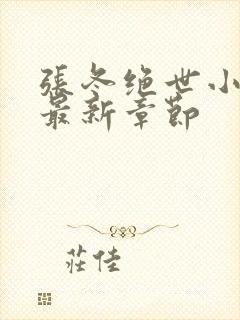 張冬绝世小
最新章節
莊佳